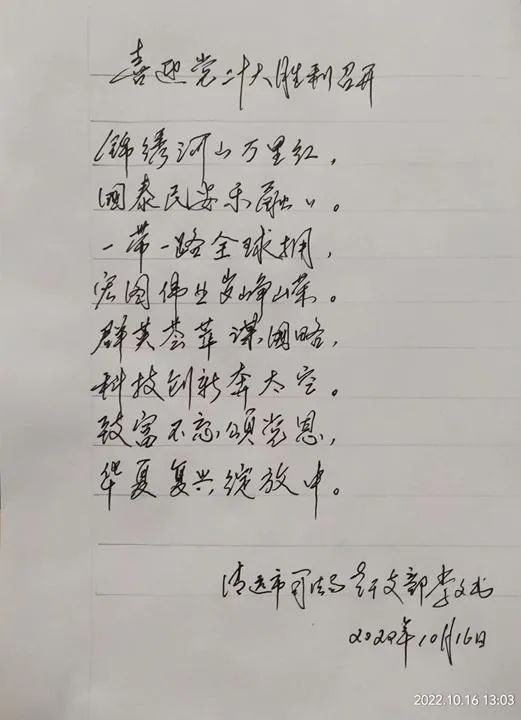 喜迎党二十大胜利召开
锦绣河山万里红，
國泰民安乐融〃。
一带一路全球拥，
宏图伟业岁峥嵘。
群英荟萃谋國略，
科技创新奔太空。
致富不忘颂党恩，
华夏复兴绽放中。
清远市司法局老干支部李文
2022年10月16日
2022.10.16 13:03